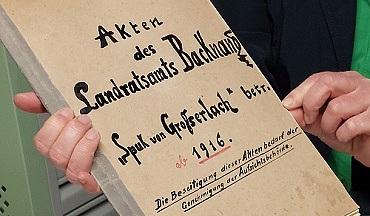 Akten
des
Landratsamts Backnang
„Spuk von Großerlach“ betr.
ab 1916.
Die Beseitigung dieser Akten bedarf der
Genehmigung der Aufsichtsbehörde.